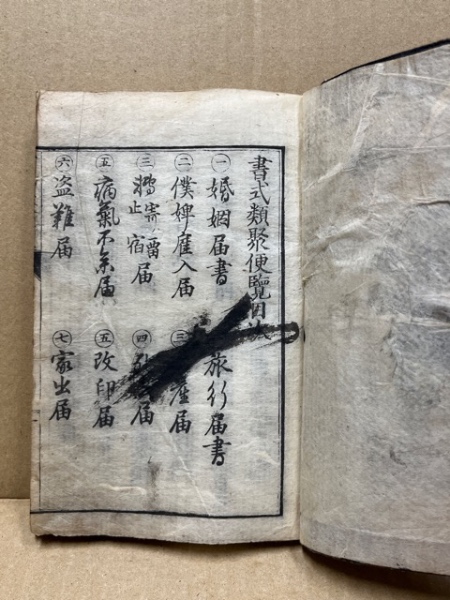 書式類聚便覧目次
㊀婚姻届書
旅行届書
㊁僕婢雇入届
㊂産届
㊂寄留届
止宿
㊃届
㊄病氣不参届
㊄改印届
㊅盗難届
㊆家出届